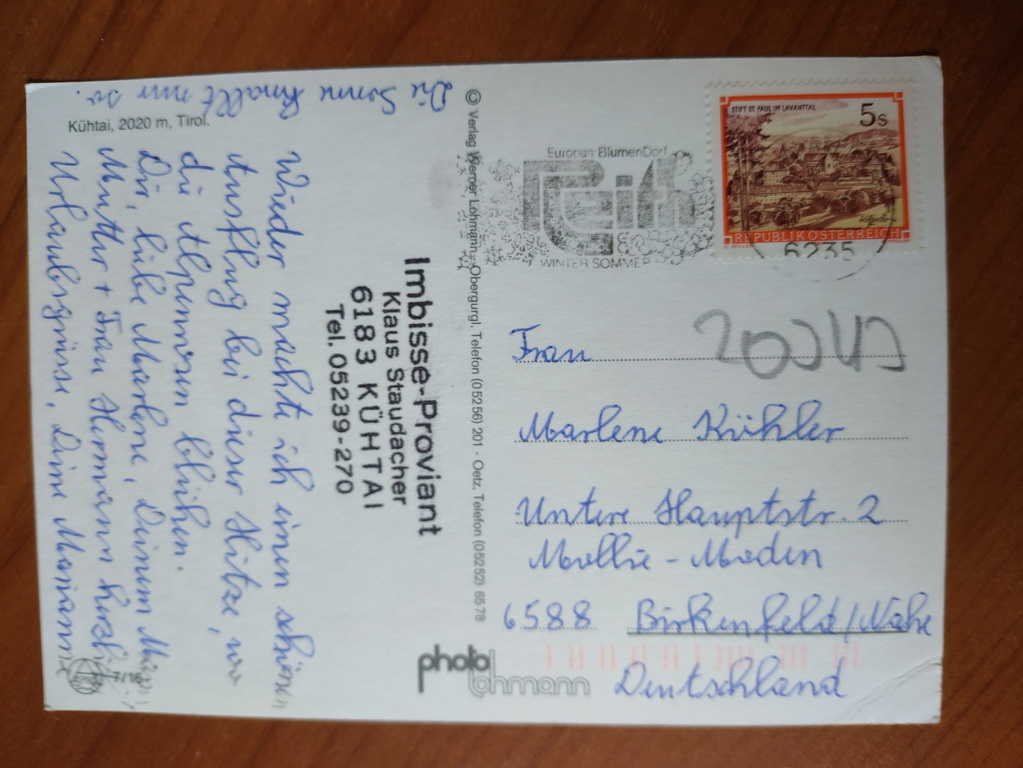 Kühtai, 2020 m, Tirol.
Wieder machte ich einen schönen
Ausflug bei dieser Hitze, wo
die Alpenrosen blühen.
Dir, liebe Marlene, Deinem
Mutter + Frau Hermann herzl.
Urlaubsgrüsse, Deine Marianne
Die Sonne knallt nur so.
7/16
Imbisse-Proviant
Klaus Staudacher
6183 KÜHTAI
Tel. 05239-270
© Verlag Werner Lohmann, Obergurgl, Telefon (05256) 201 - Oetz, Telefon (05252) 6578
photo
lohmann
Europas BlumenDorf
Reith
WINTER SOMMER
6235
STIFT ST. PAUL IM LAVANTTAL
5s
REPUBLIK ÖSTERREICH
Frau
Marlene Kühler
Untere Hauptstr. 2
Mode-Moden
6588 Birkenfeld/Nahe
Deutschland